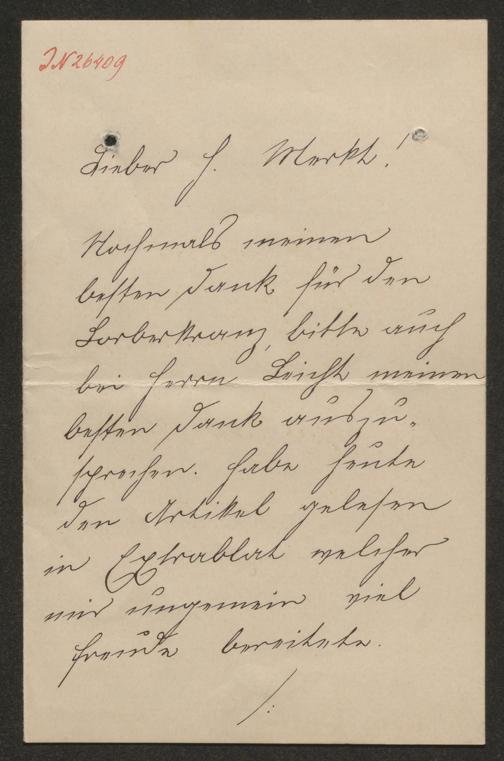 JN 26409
Lieber H. Merkt!
Nochmals meinen
besten Dank für den
Lorberkranz, bitte auch
bei Herrn Leicht meinen
besten Dank auszu-
sprechen. Habe heute
den Artikel gelesen
in Extrablat welcher
mir ungemein viel
Freude bereitete.
/: